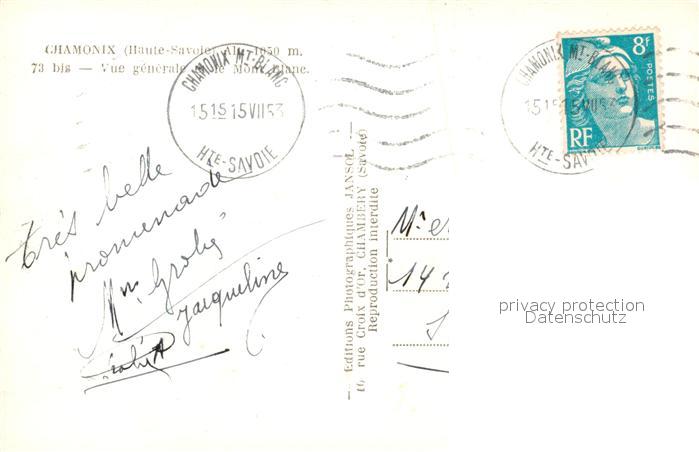 CHAMONIX (Haute-Savoie) Alt. 1050 m.
73 bis — Vue générale et le Mont Blanc.
CHAMONIX MT-BLANC
15 15 15 VII 53
HTE-SAVOIE
CHAMONIX MT-BLANC
15 15 15 VII 53
HTE-SAVOIE
8f
POSTES
RF
très belle
promenade
Jacqueline
— Editions Photographiques JANSOL —
16, rue Croix d'Or, CHAMBERY (Savoie)
Reproduction interdite
privacy protection
Datenschutz